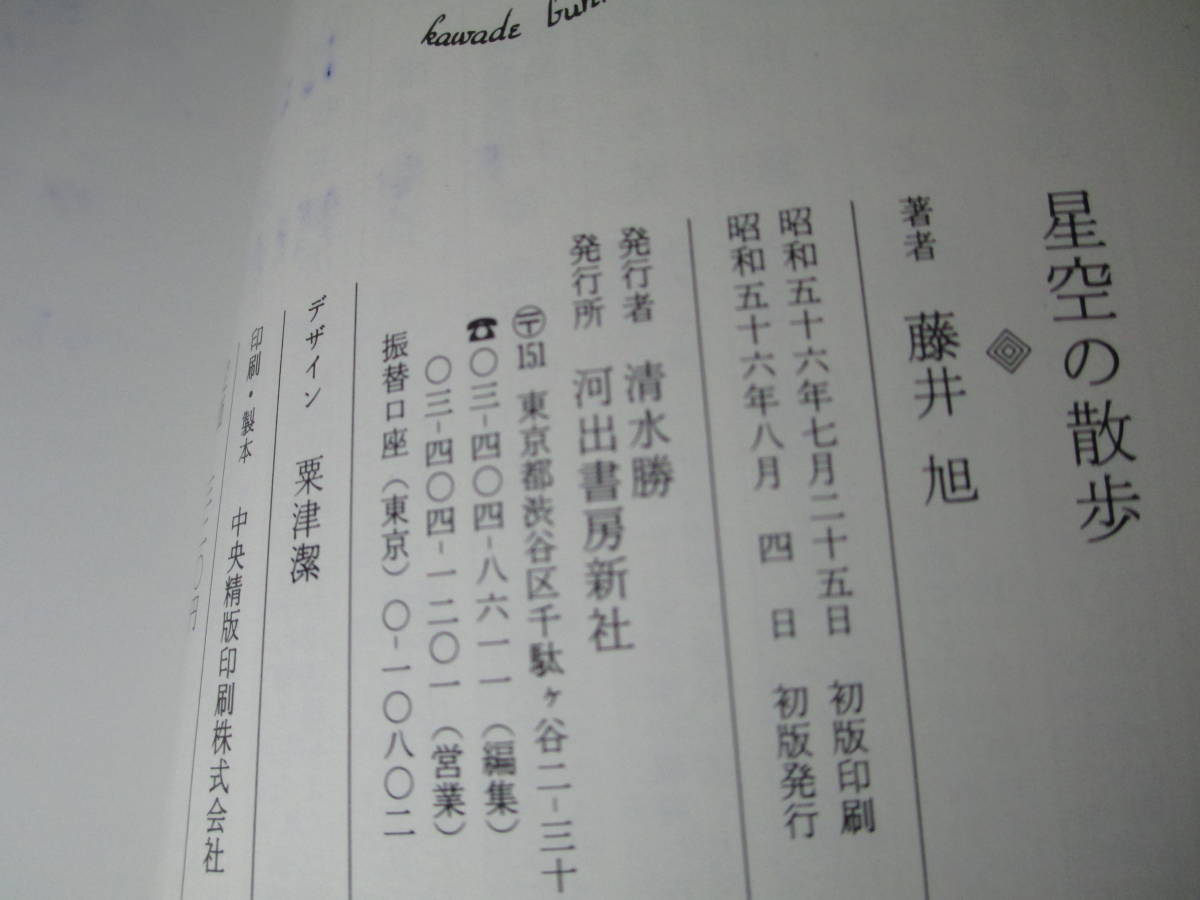 kawade
星空の散歩
著者 藤井 旭
昭和五十六年七月二十五日 初版印刷
昭和五十六年八月 四 日 初版発行
発行者 清水勝
発行所 河出書房新社
〒151 東京都渋谷区千駄ヶ谷二-三十
☎〇三-四〇四-八六一一(編集)
〇三-四〇四-一二〇一(営業)
振替口座(東京)〇-一〇八〇二
デザイン 粟津潔
印刷・製本 中央精版印刷株式会社
〇円